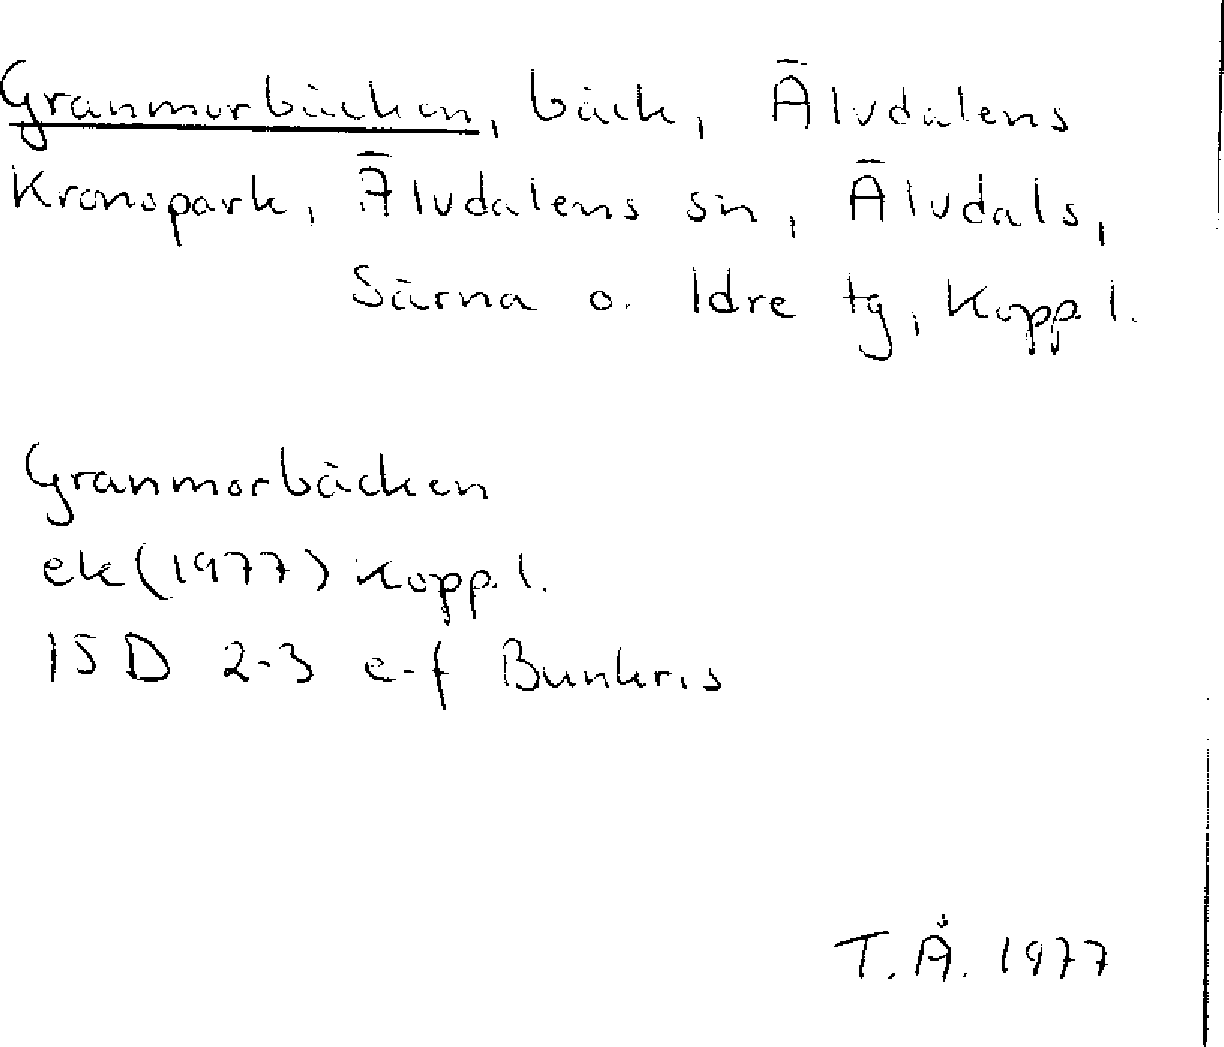 Granmorbäcken, bäck, Älvdalens
Kronopark, Älvdalens sn, Älvdals,
Särna o. Idre tg, Kopp l.
Granmorbäcken
ek(1977) Kopp. l.
15 D 2-3 e-f Bunkris
T. Å. 1977